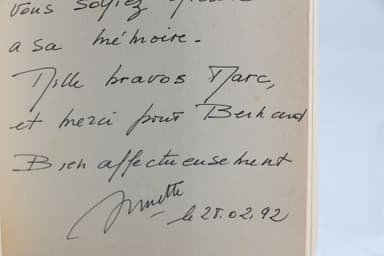 vous soyez
a sa mémoire.
Mille bravos Marc,
et merci pour Bernard
Bien affectueusement
le 28.02.92